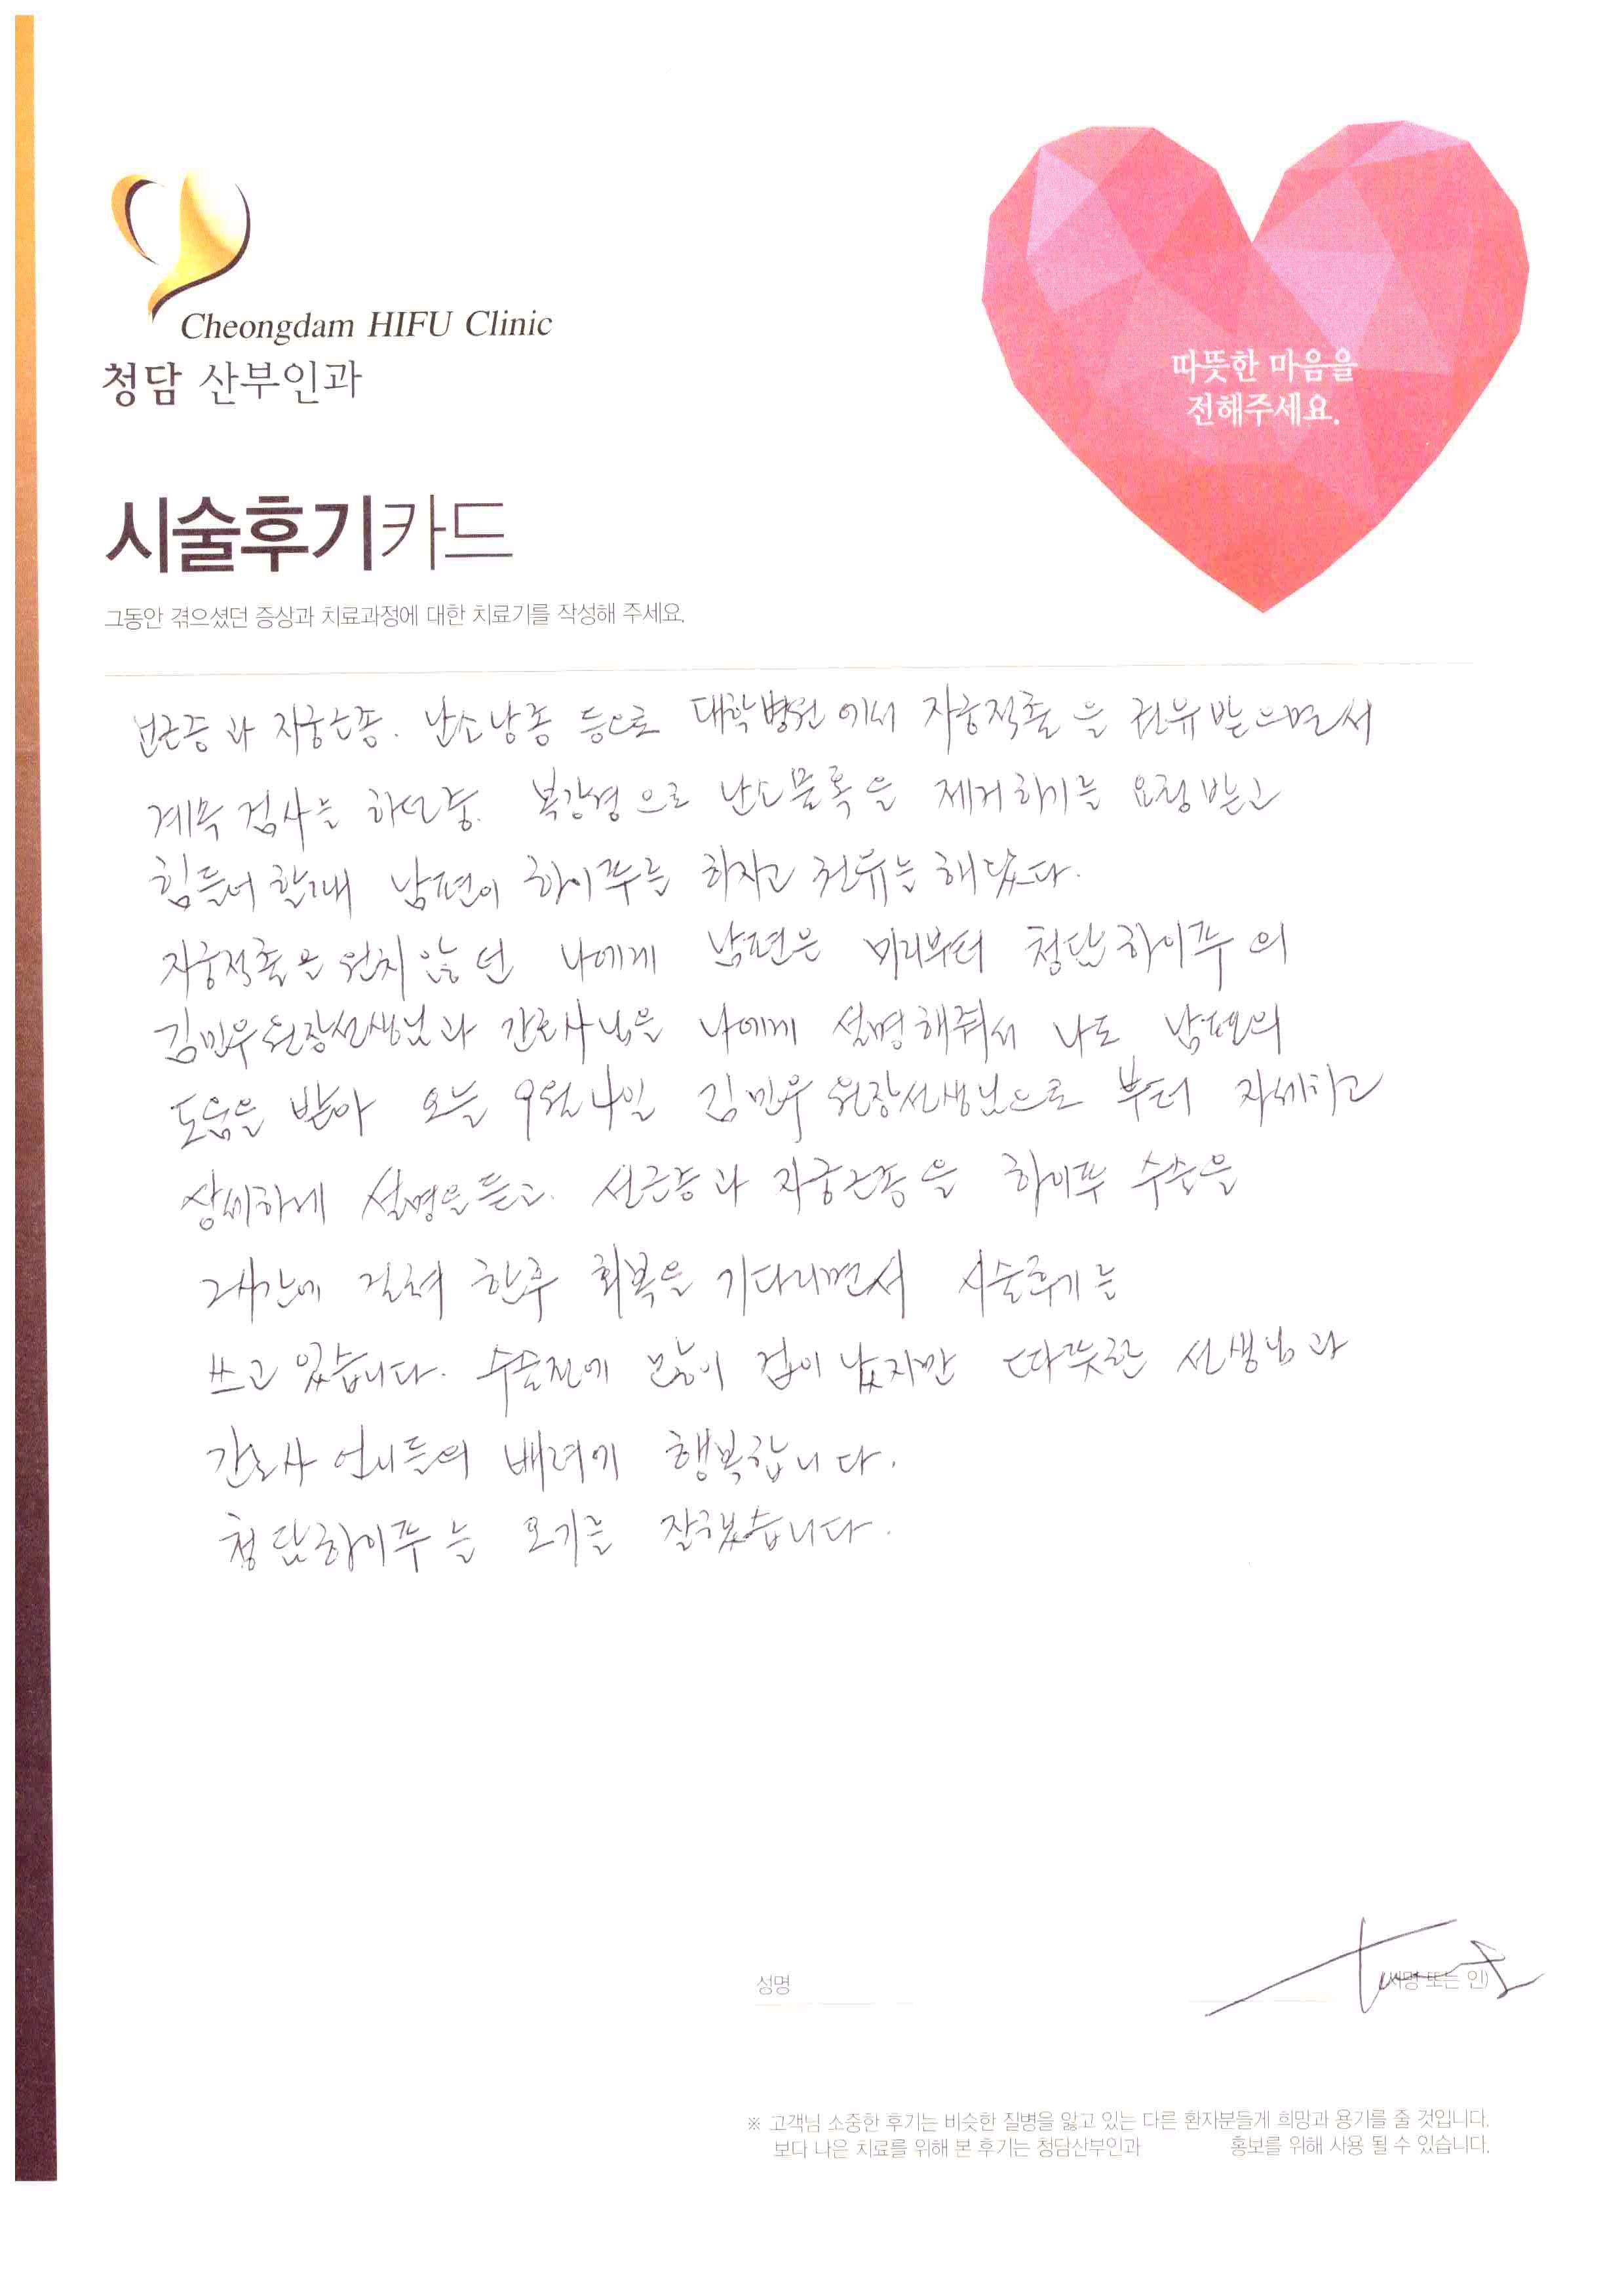 Cheongdam HIFU Clinic
청담 산부인과
따뜻한 마음을
전해주세요.
시술후기카드
그동안 겪으셨던 증상과 치료과정에 대한 치료기를 작성해 주세요.
선근증과 자궁근종. 난소낭종 등으로 대학병원에서 자궁적출을 권유받으면서
계속 검사를 하던중. 복강경으로 난소물혹을 제거하기를 요청받고
힘들어 할때 남편이 하이푸를 하자고 권유를 해났다.
자궁적출은 원치않던 나에게 남편은 미리부터 청담하이푸의
김민우원장선생님과 간호사님을 나에게 설명해줘서 나도 남편의
도움을 받아 오늘 9월 4일 김민우 원장선생님으로 부터 자세하고
상세하게 설명을 듣고. 선근증과 자궁근종을 하이푸 수술을
2시간에 걸쳐 한후 회복을 기다리면서 시술후기를
쓰고 있습니다. 수술전에 많이 겁이 났지만 따뜻한 선생님과
간호사 언니들의 배려에 행복합니다.
청담하이푸를 오기를 잘했습니다.
성명
(서명 또는 인)
※ 고객님 소중한 후기는 비슷한 질병을 앓고 있는 다른 환자분들게 희망과 용기를 줄 것입니다.
보다 나은 치료를 위해 본 후기는 청담산부인과 홍보를 위해 사용 될 수 있습니다.